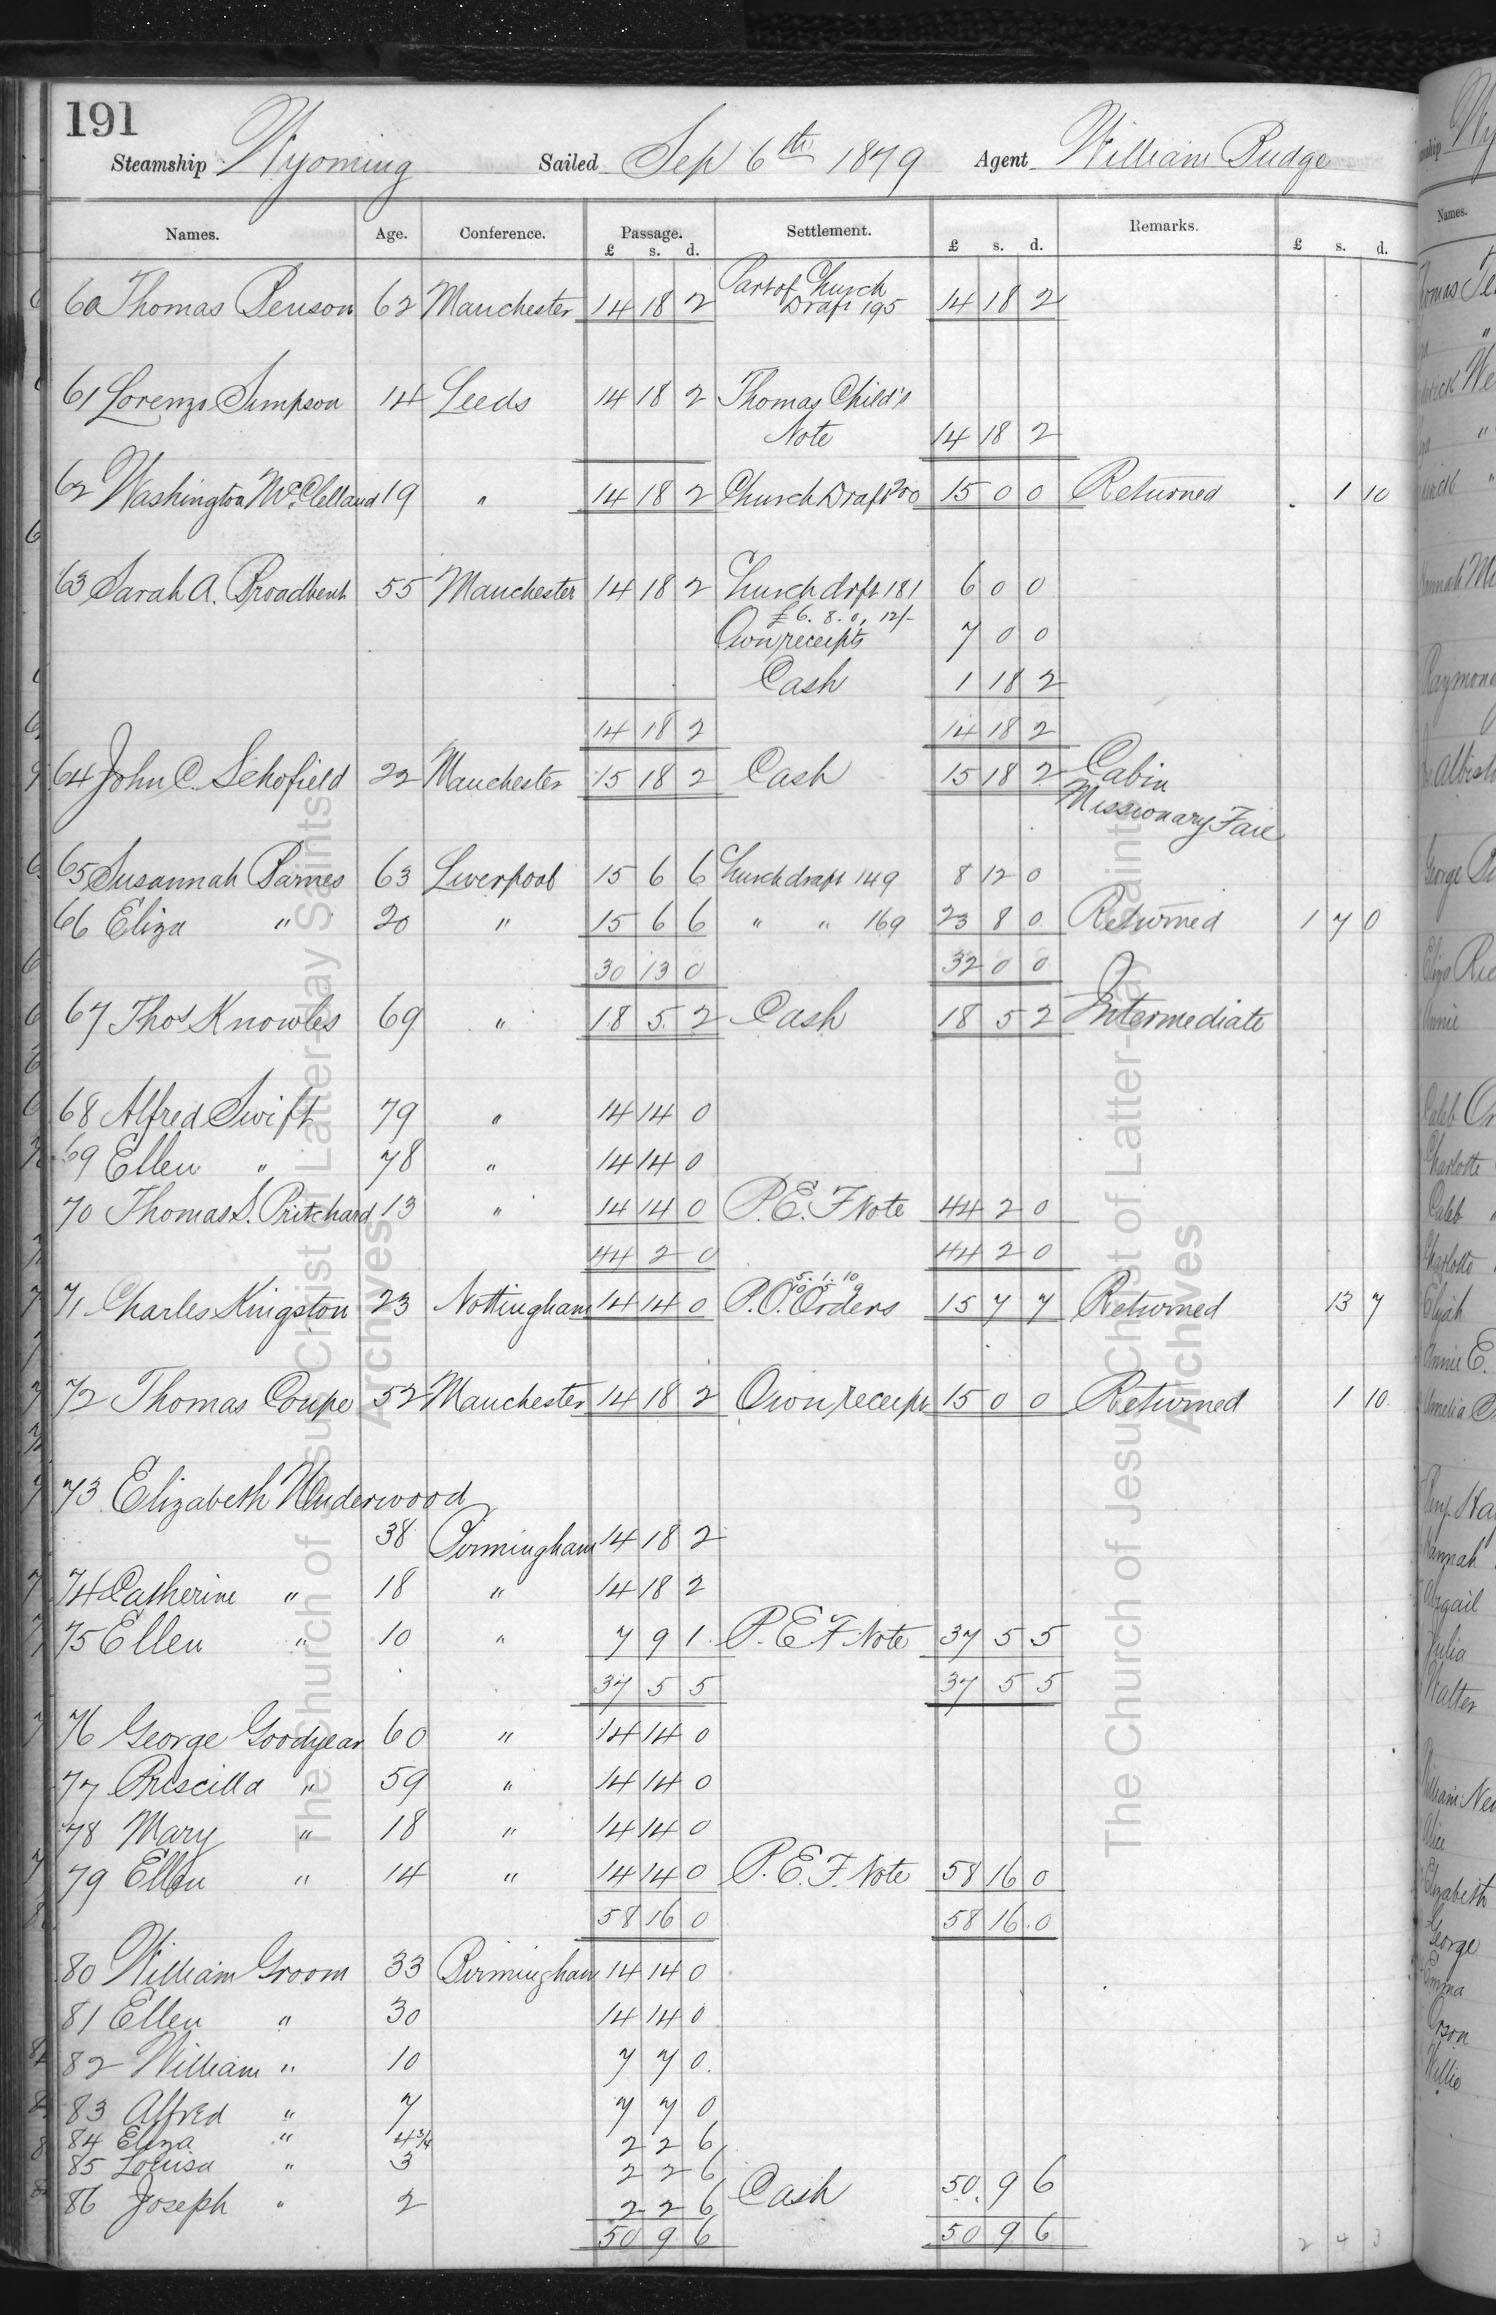 191
Steamship Wyoming Sailed Sep 6th 1879 Agent William Budge
Names. Age. Conference. Passage. Settlement. Remarks.
£ s. d. £ s. d. £ s. d.
60 Thomas Benson 62 Manchester 14 18 2 Part of Church Draft 195 14 18 2
61 Lorenzo Simpson 14 Leeds 14 18 2 Thomas Child's
Note 14 18 2
62 Washington McClelland 19 " 14 18 2 Church Draft 200 15 0 0 Returned 1 10
63 Sarah A. Broadbent 55 Manchester 14 18 2 Church drft 181 6 0 0
£6. 8. 0, 12/-
Own receipts 7 0 0
Cash 1 18 2
14 18 2 14 18 2
64 John C. Schofield 22 Manchester 15 18 2 Cash 15 18 2 Cabin
Missionary Fare
65 Susannah Barnes 63 Liverpool 15 6 6 Church draft 149 8 12 0
66 Eliza " 20 " 15 6 6 " " 169 23 8 0 Returned 1 7 0
30 13 0 32 0 0
67 Thos Knowles 69 " 18 5 2 Cash 18 5 2 Intermediate
68 Alfred Swift 79 " 14 14 0
69 Ellen " 78 " 14 14 0
70 Thomas S. Pritchard 13 " 14 14 0 P.E.F Note 44 2 0
44 2 0 44 2 0
5. 1. 10
10 5 9
71 Charles Kingston 23 Nottingham 14 14 0 P.O. Orders 15 7 7 Returned 13 7
72 Thomas Coupe 52 Manchester 14 18 2 Own receipt 15 0 0 Returned 1 10
73 Elizabeth Underwood
38 Birmingham 14 18 2
74 Catherine " 18 " 14 18 2
75 Ellen " 10 " 7 9 1 P.E.F Note 37 5 5
37 5 5 37 5 5
76 George Goodyear 60 " 14 14 0
77 Priscilla " 59 " 14 14 0
78 Mary " 18 " 14 14 0
79 Ellen " 14 " 14 14 0 P.E.F. Note 58 16 0
58 16 0 58 16 0
80 William Groom 33 Birmingham 14 14 0
81 Ellen " 30 14 14 0
82 William " 10 7 7 0
83 Alfred " 7 7 7 0
84 Eliza " 4 3/4 2 2 6
85 Louisa " 3 2 2 6
86 Joseph " 2 2 2 6 Cash 50 9 6
50 9 6 50 9 6
2 4 3
The Church of Jesus Christ of Latter-day Saints
Archives
The Church of Jesus Christ of Latter-day Saints
Archives
Names.
George
Emma
Orson
Willie